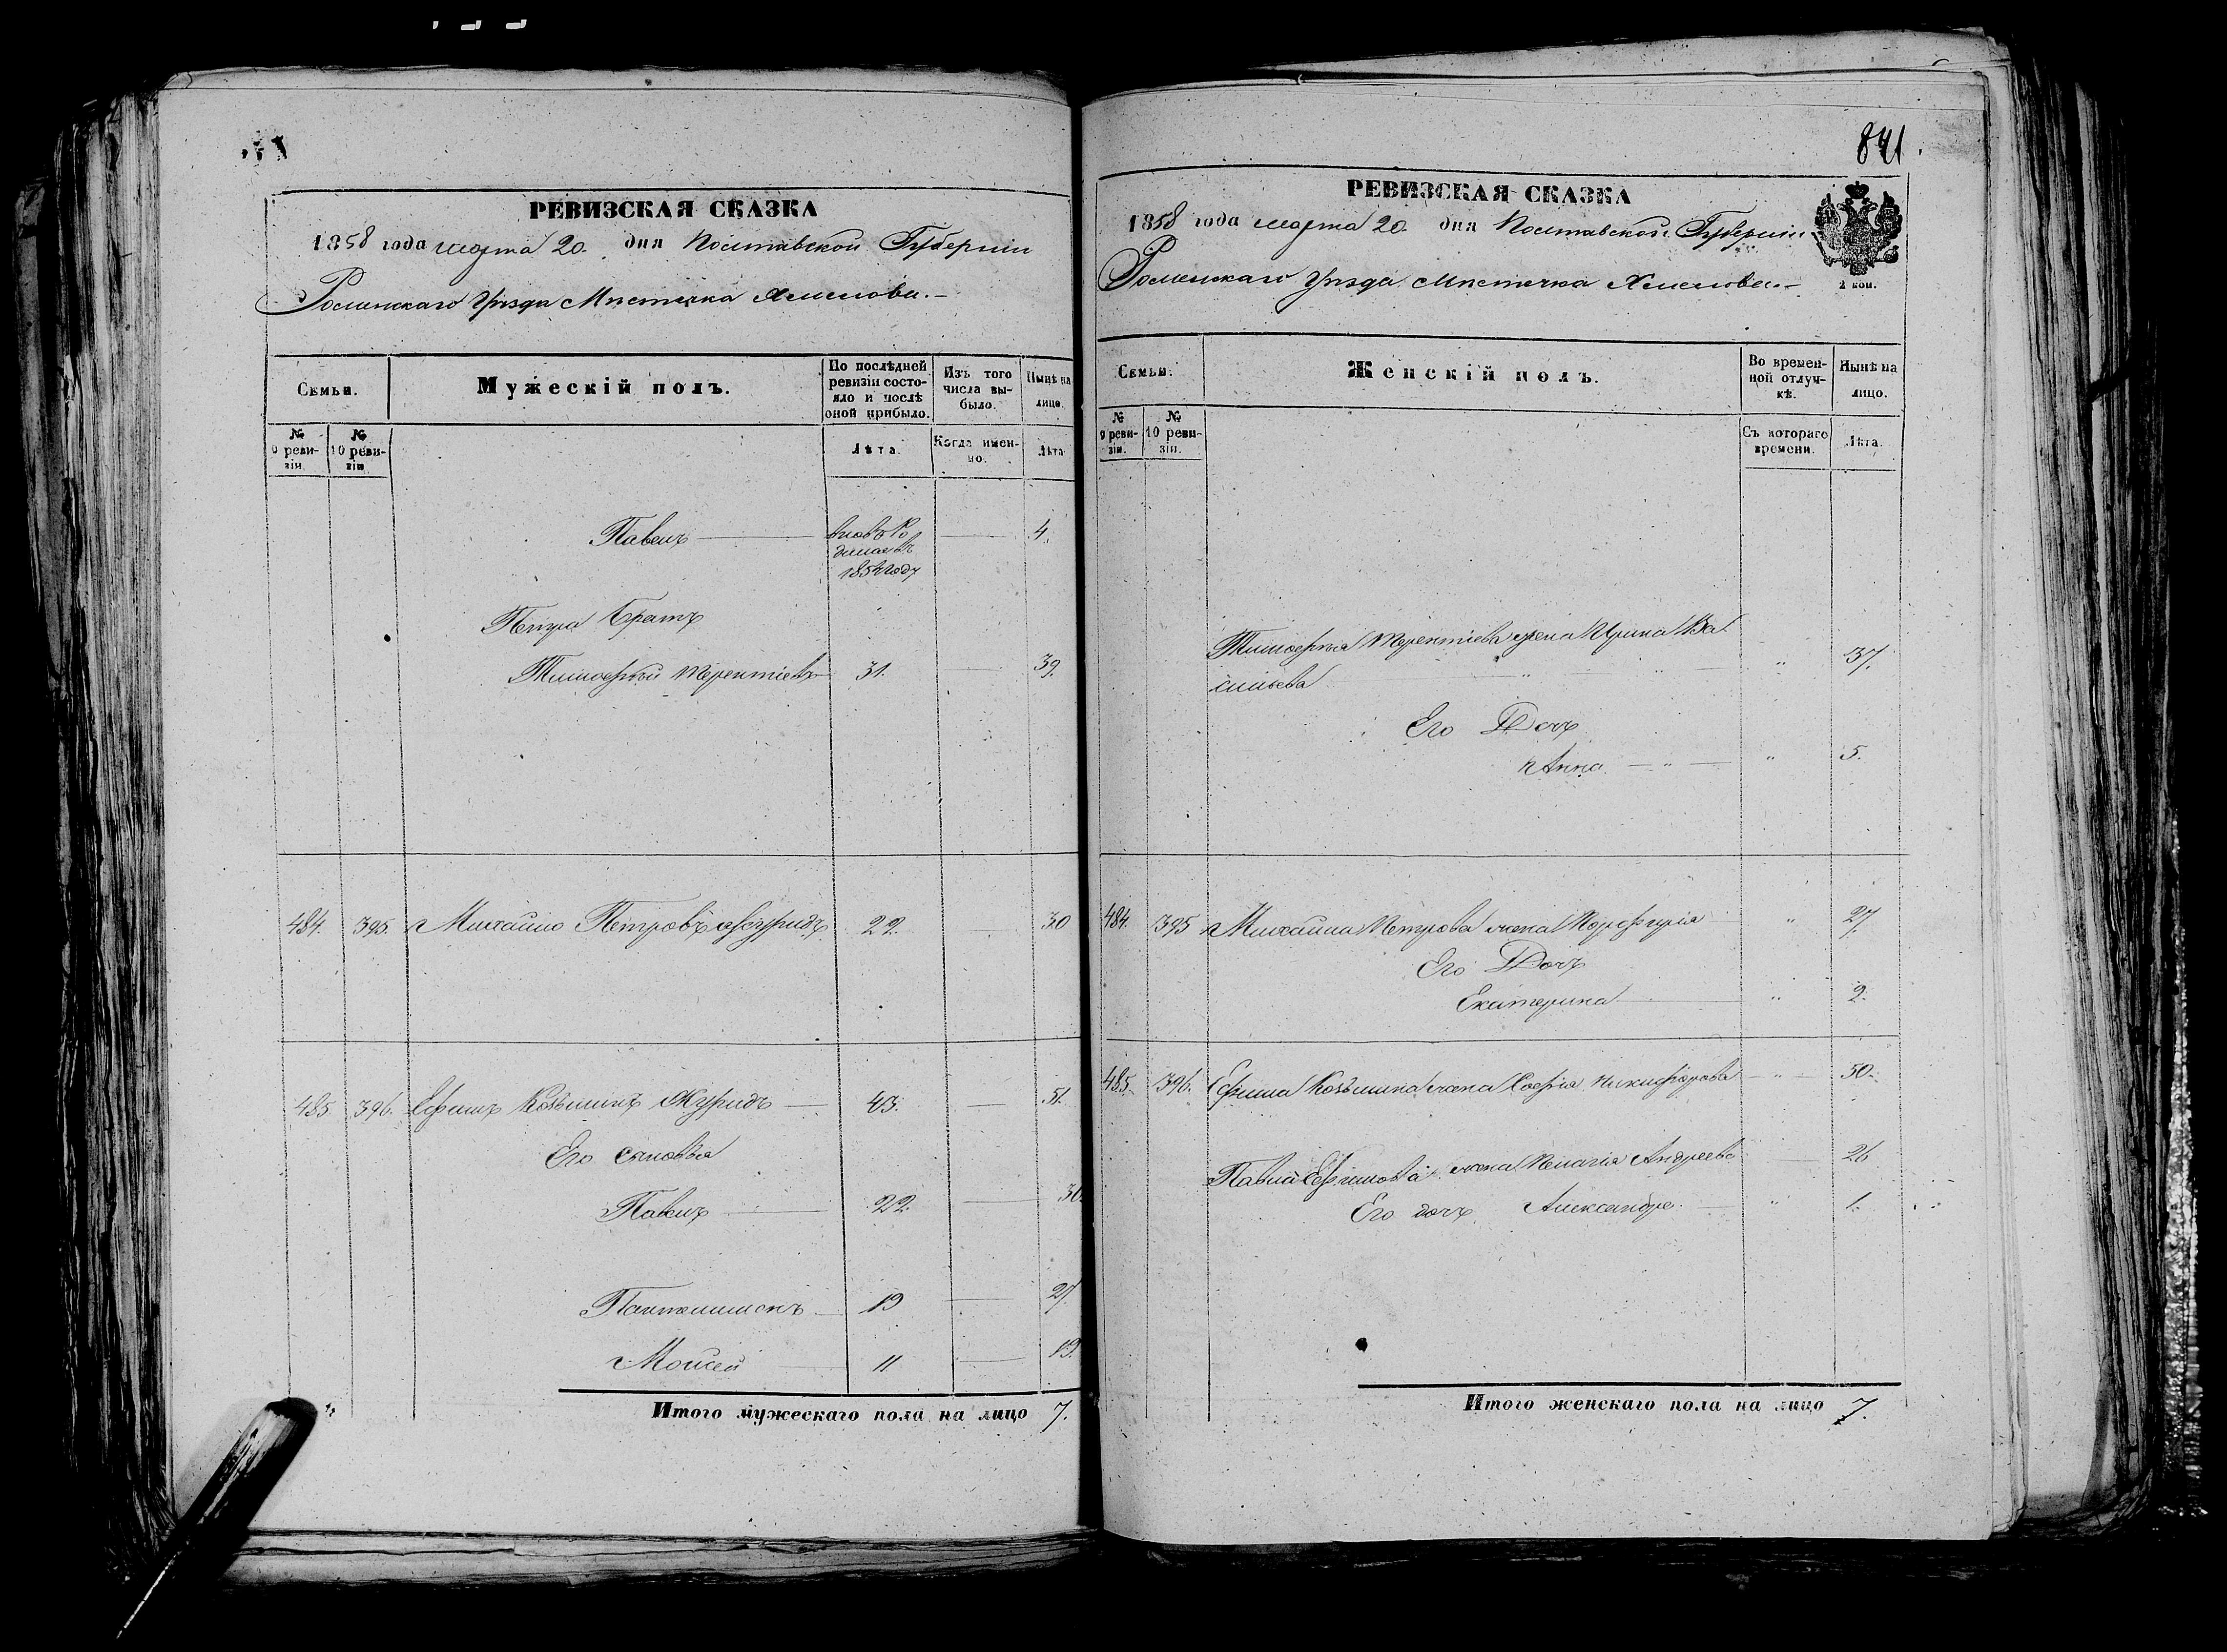 РЕВИЗСКАЯ СКАЗКА
1858 года марта 20. дня Полтавской Губернии
Роменскаго Уезда Местечка Хмелова.—
Семьи.
Мужескій полъ.
По послѣдней ревизіи состояло и послѣ оной прибыло.
Изъ того числа выбыло.
Нынѣ на лицо.
№ 9 ревизіи.
№ 10 ревизіи
Лѣта.
Когда именно.
Лѣта
Павелъ — вновь Ро — 4.
дился въ
1854 году
Петра Братъ
Тимофей Терентіевъ 31. — 39.
484. 395. Михайло Петровъ Журидъ 22. — 30
485 396. Ефимъ Козьминъ Журидъ — 43. — 51.
Его сыновья
Павелъ — 22. — 30.
Пантелимонъ 19 — 27.
Моисей — 11 — 19.
Итого мужескаго пола на лицо 7.
841.
РЕВИЗСКАЯ СКАЗКА
1858 года марта 20. дня Полтавской Губернии
Роменскаго Уезда Местечка Хмелова.—
2 коп.
Семьи.
Женскій полъ.
Во временной отлучкѣ.
Нынѣ на лицо.
№ 9 ревизіи.
№ 10 ревизіи.
Съ котораго времени.
Лѣта.
Тимофея Терентіева жена Ирина Ва
сильева " 37.
Его Дочь
Анна — " — " 5.
484. 395 Михайла Петрова жена Порфирія " 27.
Его Дочь
Екатерина — " 2.
485. 396. Ефима Козьмина жена Софія Никифорова — " 50.
Павла Ефимова жена Пелагія Андреева 26
Его дочь Александра. — " 1.
Итого женскаго пола на лицо 7.